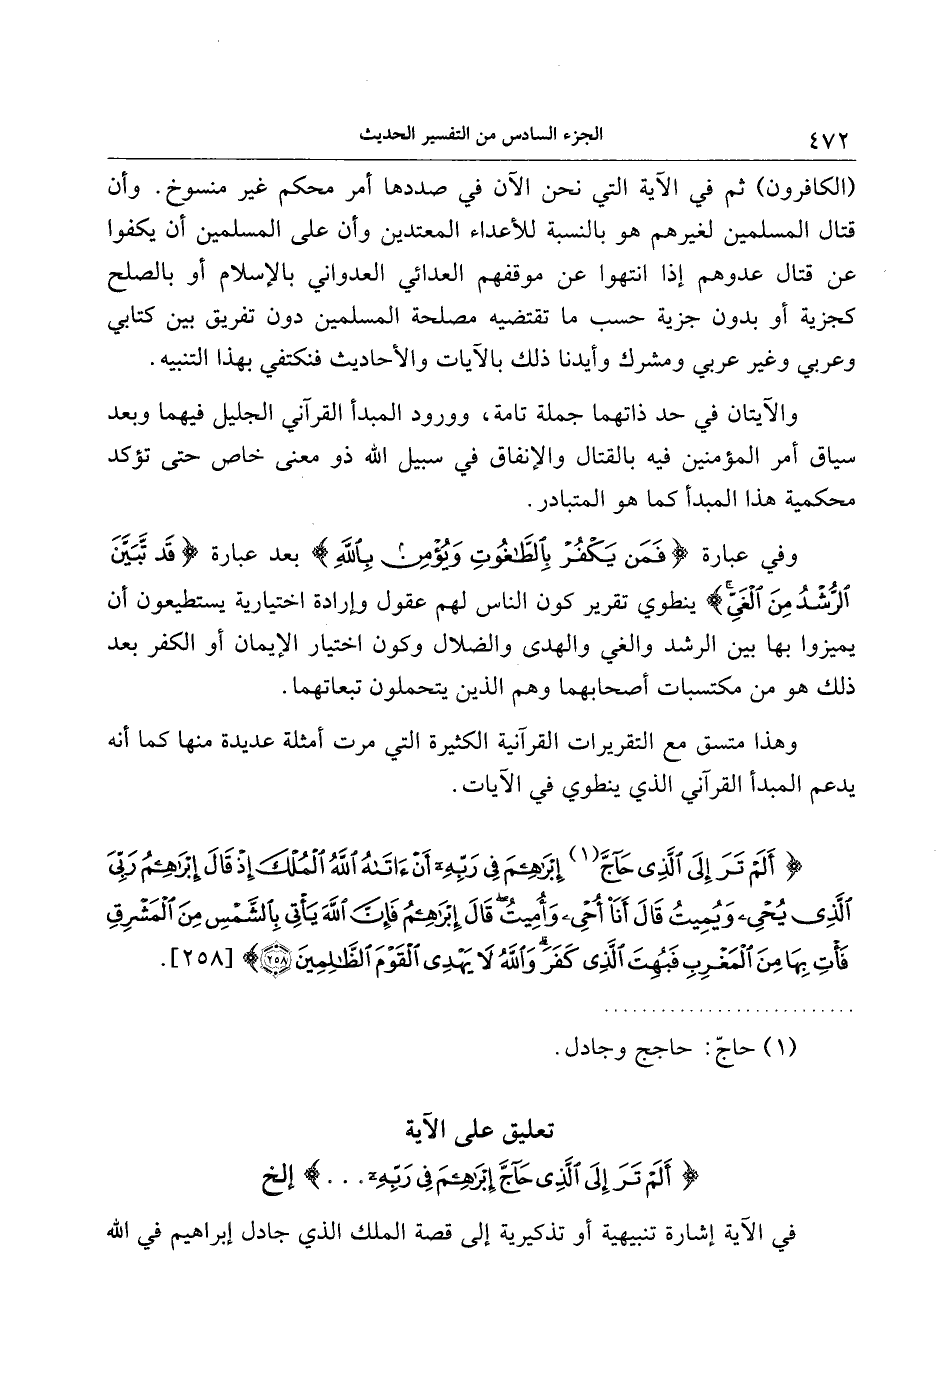 ٤٧٢ الجزء السادس من التفسير الحديث
(الكافرون) ثم في الآية التي نحن الآن في صددها أمر محكم غير منسوخ. وأن
قتال المسلمين لغيرهم هو بالنسبة للأعداء المعتدين وأن على المسلمين أن يكفوا
عن قتال عدوهم إذا انتهوا عن موقفهم العدائي العدواني بالإسلام أو بالصلح
كجزية أو بدون جزية حسب ما تقتضيه مصلحة المسلمين دون تفريق بين كتابي
وعربي وغير عربي ومشرك وأيدنا ذلك بالآيات والأحاديث فنكتفي بهذا التنبيه.
والآيتان في حد ذاتهما جملة تامة، وورود المبدأ القرآني الجليل فيهما وبعد
سياق أمر المؤمنين فيه بالقتال والإنفاق في سبيل الله ذو معنى خاص حتى تؤكد
محكمية هذا المبدأ كما هو المتبادر.
وفي عبارة ﴿ فَمَن يَكْفُرْ بِٱلطَّٰغُوتِ وَيُؤْمِنۢ بِٱللَّهِ ﴾ بعد عبارة ﴿ قَد تَّبَيَّنَ
ٱلرُّشْدُ مِنَ ٱلْغَىِّۚ ﴾ ينطوي تقرير كون الناس لهم عقول وإرادة اختيارية يستطيعون أن
يميزوا بها بين الرشد والغي والهدى والضلال وكون اختيار الإيمان أو الكفر بعد
ذلك هو من مكتسبات أصحابهما وهم الذين يتحملون تبعاتهما.
وهذا متسق مع التقريرات القرآنية الكثيرة التي مرت أمثلة عديدة منها كما أنه
يدعم المبدأ القرآني الذي ينطوي في الآيات.
﴿ أَلَمْ تَرَ إِلَى ٱلَّذِى حَآجَّ(١) إِبْرَٰهِـۧمَ فِى رَبِّهِۦٓ أَنْ ءَاتَىٰهُ ٱللَّهُ ٱلْمُلْكَ إِذْ قَالَ إِبْرَٰهِـۧمُ رَبِّىَ
ٱلَّذِى يُحْىِۦ وَيُمِيتُ قَالَ أَنَا۠ أُحْىِۦ وَأُمِيتُ ۖ قَالَ إِبْرَٰهِـۧمُ فَإِنَّ ٱللَّهَ يَأْتِى بِٱلشَّمْسِ مِنَ ٱلْمَشْرِقِ
فَأْتِ بِهَا مِنَ ٱلْمَغْرِبِ فَبُهِتَ ٱلَّذِى كَفَرَ ۗ وَٱللَّهُ لَا يَهْدِى ٱلْقَوْمَ ٱلظَّٰلِمِينَ ٢٥٨ ﴾ [٢٥٨].
(١) حاجّ: حاجج وجادل.
تعليق على الآية
﴿ أَلَمْ تَرَ إِلَى ٱلَّذِى حَآجَّ إِبْرَٰهِـۧمَ فِى رَبِّهِۦٓ . . . ﴾ إلخ
في الآية إشارة تنبيهية أو تذكيرية إلى قصة الملك الذي جادل إبراهيم في الله